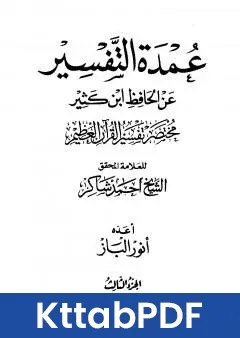 عُمْدَةُ التَّفْسِير
عَنِ الحَافِظِ ابْنِ كَثِير
مُخْتَصَر تَفْسِيْرِ القُرآنِ العَظِيْمِ
للعَلّامة المحقق
الشَّيْخ أَحْمَد شَاكِر
أعَدّه
أنور البَاز
الجُزءُ الثَّالِث
KttabPDF